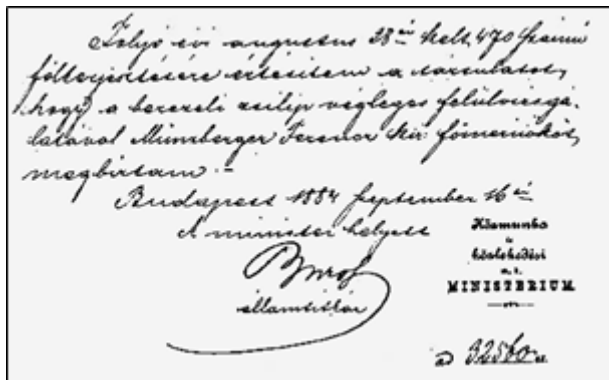 Folyó évi augusztus 28án kelt 470 számú
fölterjesztésére értesítem a társulatot,
hogy a bezerédi zsilip végleges felülvizsgá-
latával Münzberger Ferencz kir: főmérnököt,
megbíztam. -
Budapest 1884 September 16án
A minister helyett
államtitkár
Közmunka
és
közlekedési
m. k.
MINISTERIUM
32560